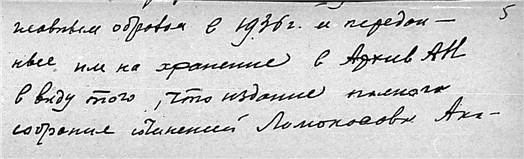 5
главным образом в 1936 г. и передан-
ные им на хранение в Архив АН
в виду того, что издание полного
собрания сочинений Ломоносова Ака-